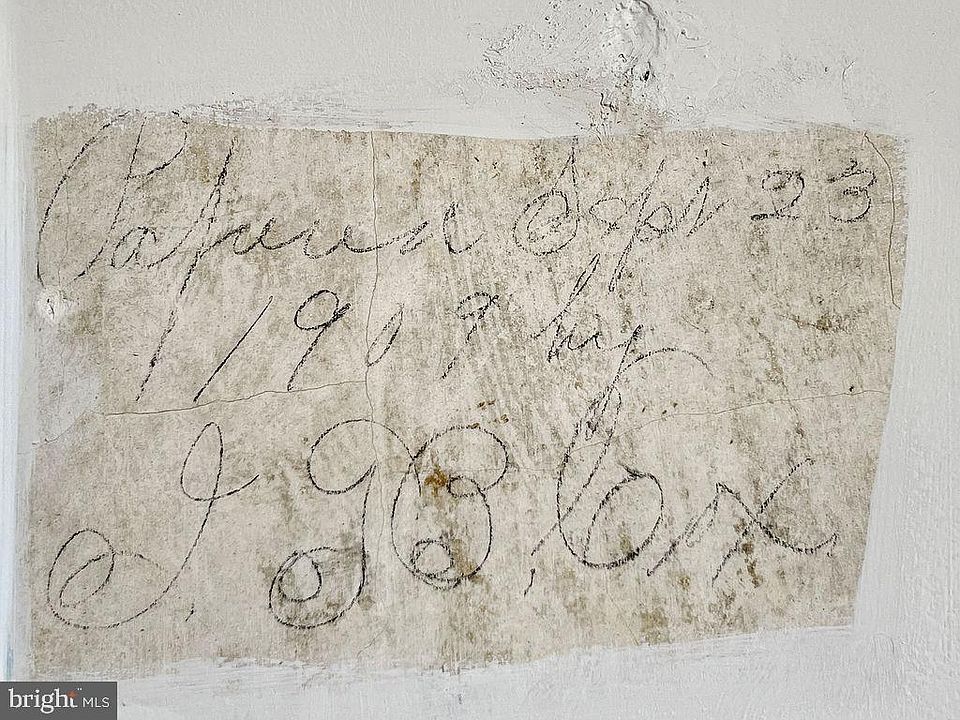 Papered Sept 23
1909 by
J. B. Cox
bright MLS